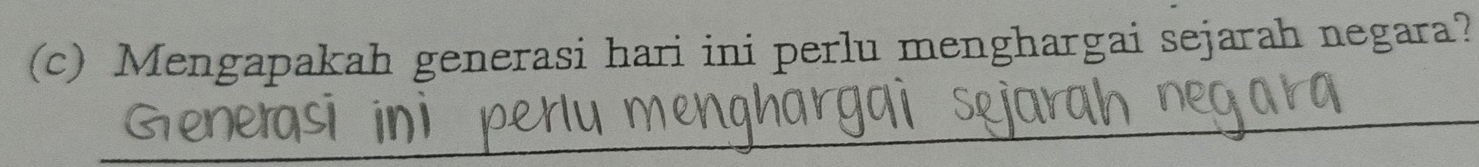 (c) Mengapakah generasi hari ini perlu menghargai sejarah negara?
Generasi ini perlu menghargai sejarah negara